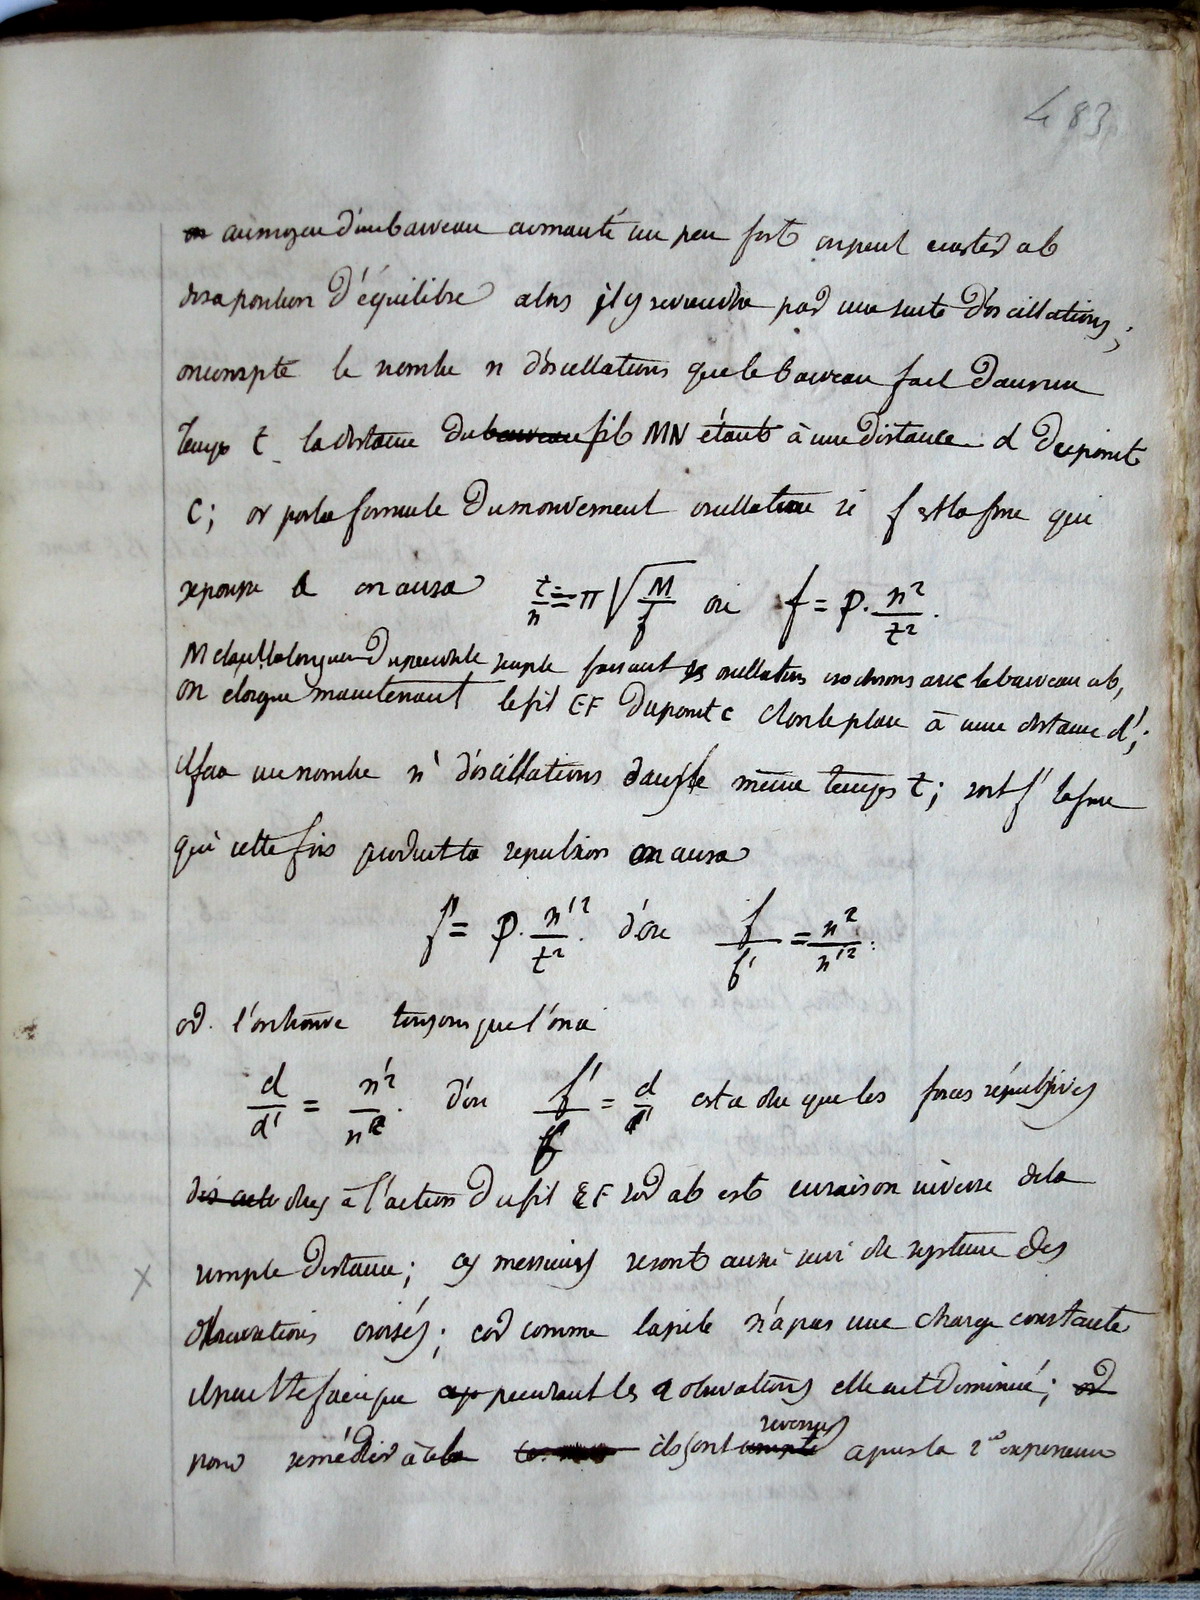 483
au moyen d'un barreau aimanté un peu fort on peut ecarter ab
de sa position d'équilibre alors il y reviendra par une suite d'oscillations;
on compte le nombre n d'oscillations que le barreau fait dans un
temps t la distance du barreau fil MN étant à une distance d du point
C; or par la formule du mouvement oscillatoire si f est la force qui
repousse on aura t/n = π √(M/f) ou f = p. n²/t².
M étant la longueur du pendule simple faisant des oscillations isochrones avec le barreau ab,
on éloigne maintenant le fil EF du point c dans le plan à une distance d';
il fera un nombre n' d'oscillations dans le même temps t; soit f' la force
qui cette fois produit la repulsion on aura
f' = p. n'²/t². d'ou f/f' = n²/n'².
or l'on trouve toujours que l'on a
d/d' = n'²/n². d'ou f'/f = d/d' c'est a dire que les forces répulsives
dues à l'action du fil EF sur ab est en raison inverse de la
simple distance; ces messieurs se sont aussi servi du systeme des
observations croisés; car comme la pile n'a pas une charge constante
il peut se faire que pendant les 2 observations elle ait diminué; or
pour remédier à cela ils sont revenus apres la 2e experience